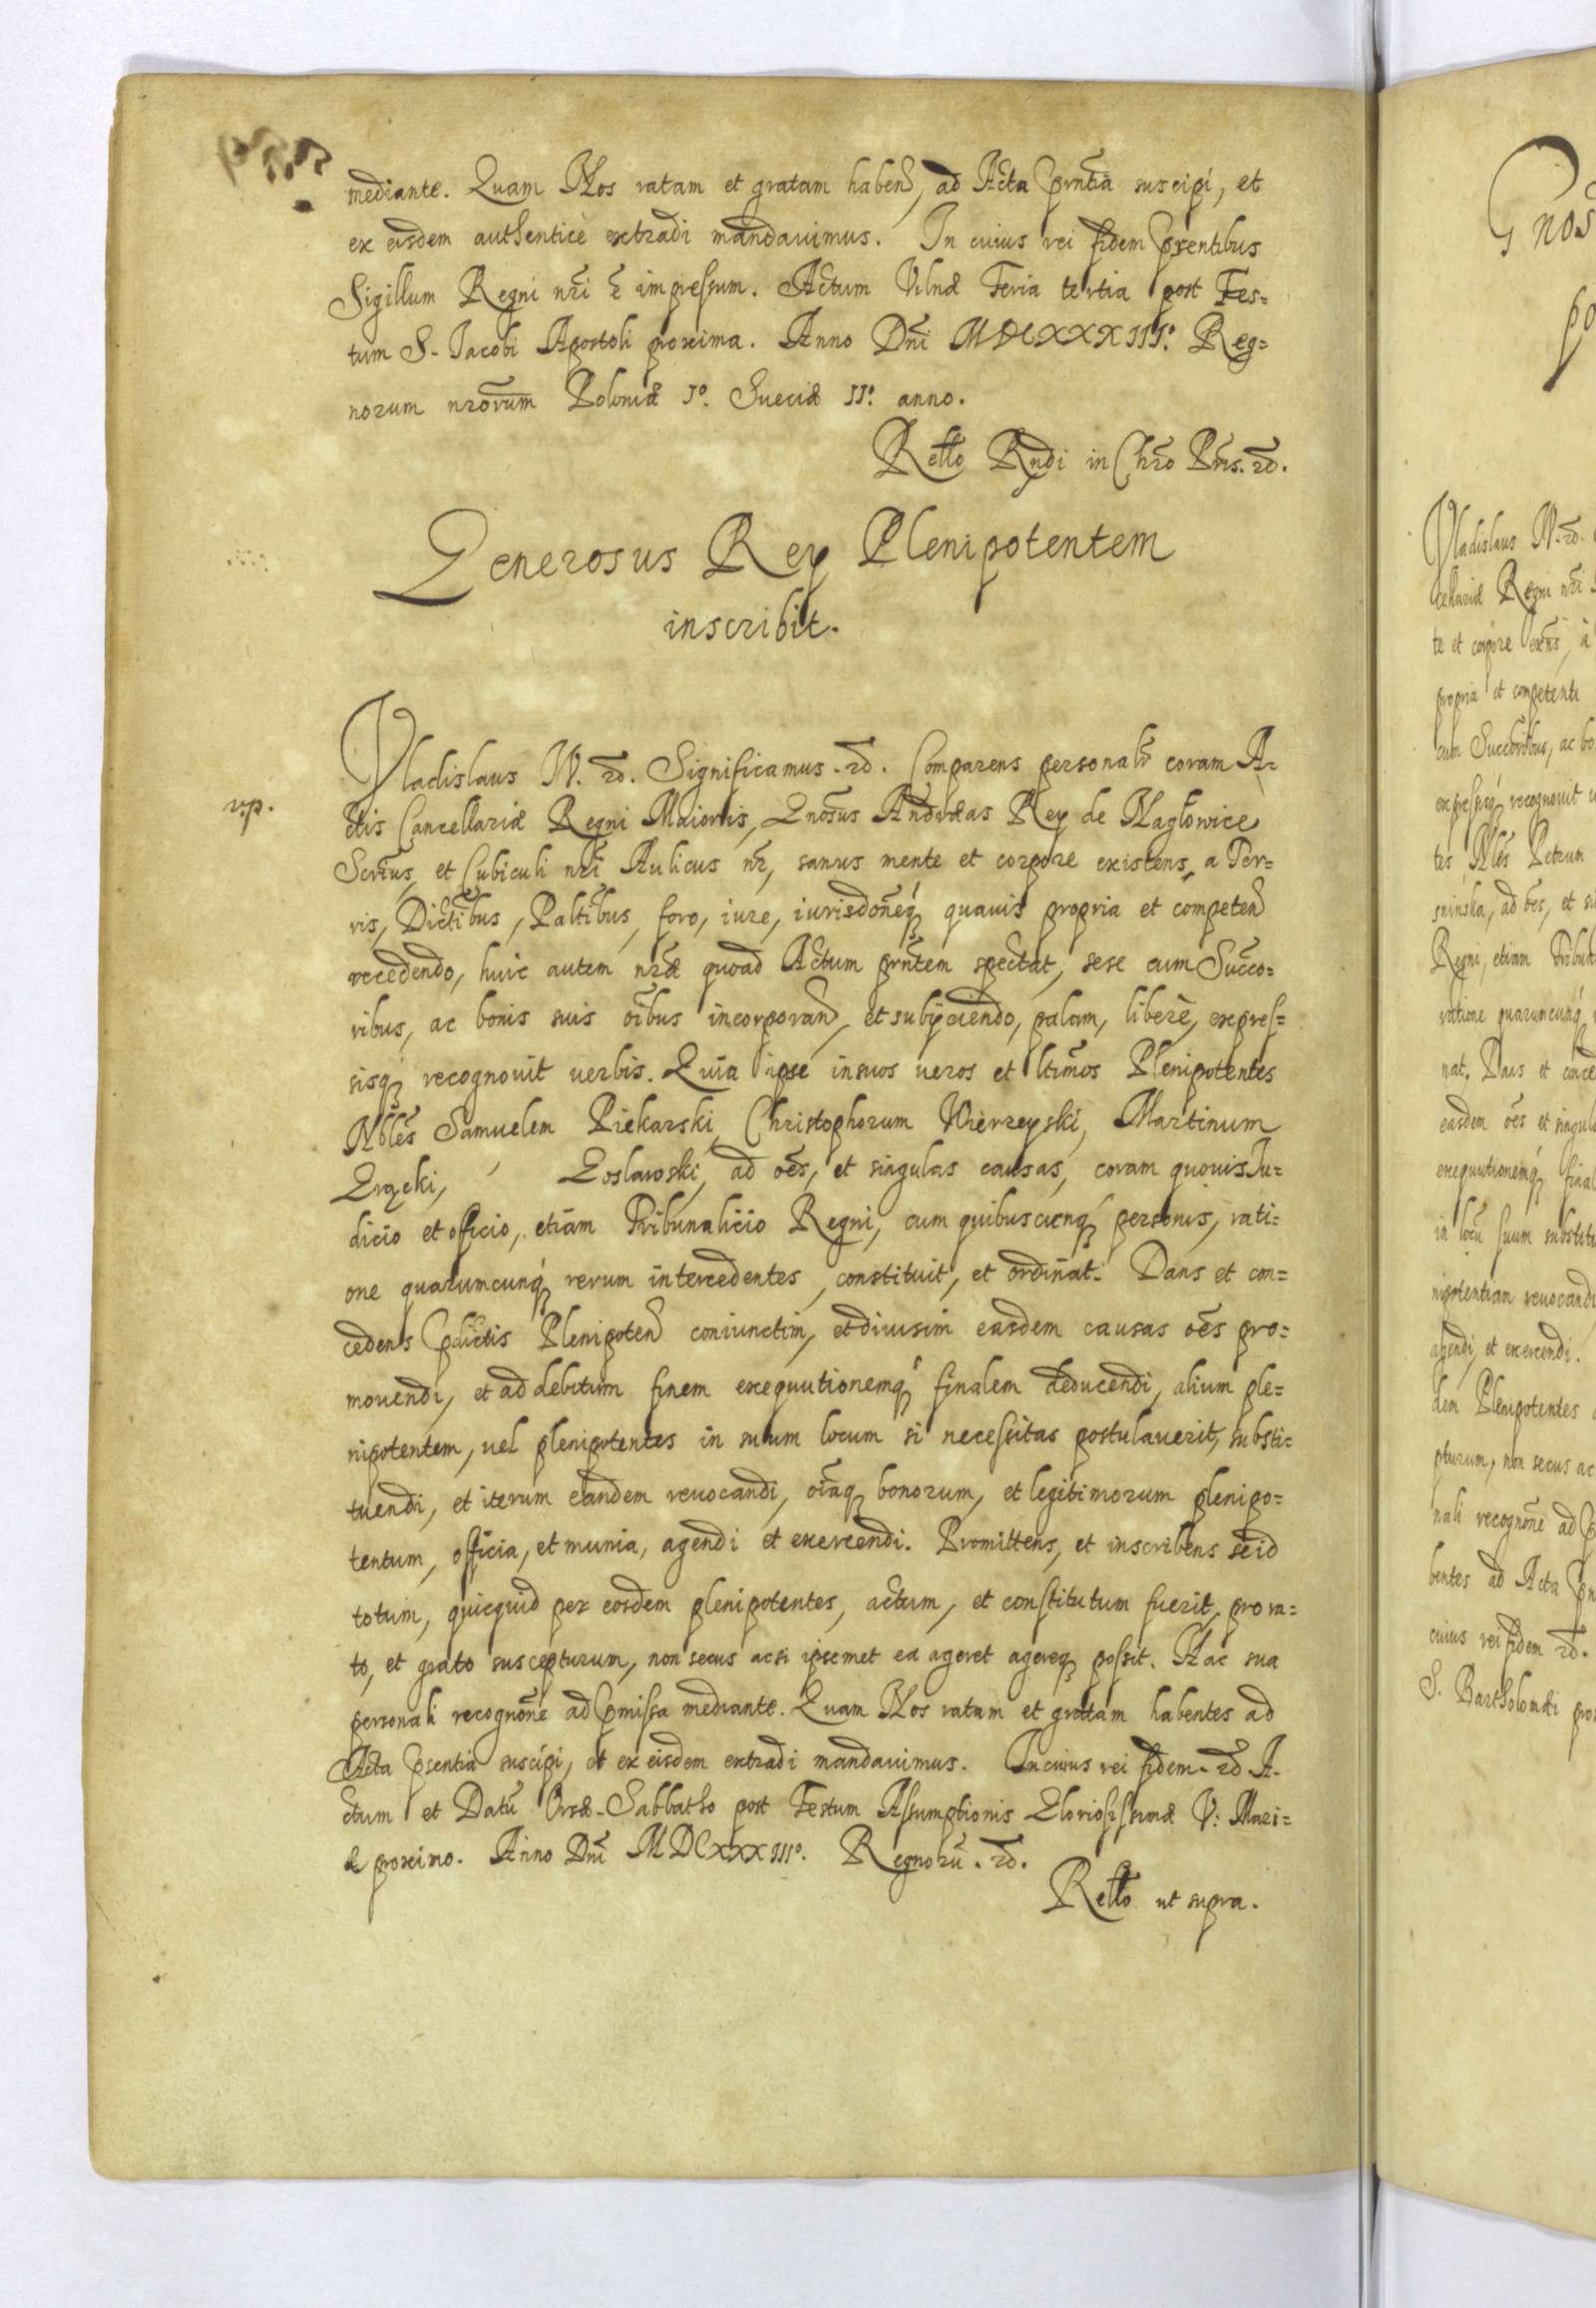 mediante. Quam Nos ratam et gratam haben, ad Acta prntia suscipi, et
ex eisdem authenticè extradi mandauimus. In cuius rei fidem psentibus
Sigillum Regni nri ẽ impressum. Actum Vilnæ Feria tertia post Fes=
tum S. Jacobi Apostoli proxima. Anno Dni MDCXXXIII. Reg=
norum nrorum Poloniæ Io. Sueciæ IIo. anno.
Retto Rndi in Chro Pris. etc.
Generosus Rey Plenipotentem
inscribit.
Vladislaus IV. etc. Significamus. etc. Comparens personalr coram A=
v.p.
ctis Cancellariæ Regni Maioris, Gnosus Andræas Rey de Nagłowice
et Cubiculi nri Aulicus nr, sanus mente et corpore existens, a Ter=
ris, Dictibus, Paltibus, foro, iure, iurisdoneq quauis propria et competen
recedendo, huic autem nræ quoad Actum prntem spectat, sese cum Succo=
ribus, ac bonis suis oibus incorporan, et subijciendo, palam, liberè, expres=
sisq recognouit uerbis. Quia ipse in suos ueros et ltimos Plenipotentes
Nbles Samuelem Piekarski, Christophorum Wierzeyski, Martinum
Gracki, Goslawski, ad oes, et singulas causas, coram quouis Ju=
dicio et officio, etiam Tribunalicio Regni, cum quibuscunq personis, rati=
one quarumcunq rerum intercedentes, constituit, et ordinat. Dans et con=
cedens pdictis Plenipoten coniunctim, et diuisim easdem causas oes pro=
mouendi, et ad debitum finem exequutionemq finalem deducendi, alium ple=
nipotentem, uel plenipotentes in suum locum si necessitas postulauerit, substi=
tuendi, et iterum eandem reuocandi, oiaq bonorum, et legitimorum plenipo=
tentum, officia, et munia, agendi et exercendi. Promittens, et inscribens se id
totum, quicquid per eosdem plenipotentes, actum, et constitutum fuerit, pro ra=
to, et grato suscepturum, non secus ac si ipsemet ea ageret agereq possit. Hac sua
personali recognone ad pmissa mediante. Quam Nos ratam et gratam habentes ad
Acta psentia suscipi, et ex eisdem extradi mandauimus. In cuius rei fidem. etc A=
ctum et Datu Orsæ. Sabbatho post Festum Assumptionis Gloriosissimæ V. Mari=
æ proximo. Anno Dni MDCXXXIIIo. Regnoru. etc.
Retto ut supra.
G
nos
po
Vladislaus IV. etc.
cellariæ Regni nri
te et corpore exns, à
propria et competenti
cum Succoribus, ac bo
expressisq recognouit u
tes Nbles Petrum
ad oes, et si
Regni, etiam Tribun
ratione quarumcunq
nat. Dans et conce
easdem oes et singula
exequutionemq final
in locu suum substitu
nipotentiam reuocandi
agendi, et exercendi.
dem Plenipotentes
pturum, non secus ac
nali recognone ad p
bentes ad Acta pn
cuius rei fidem etc.
S. Bartholomæi pro